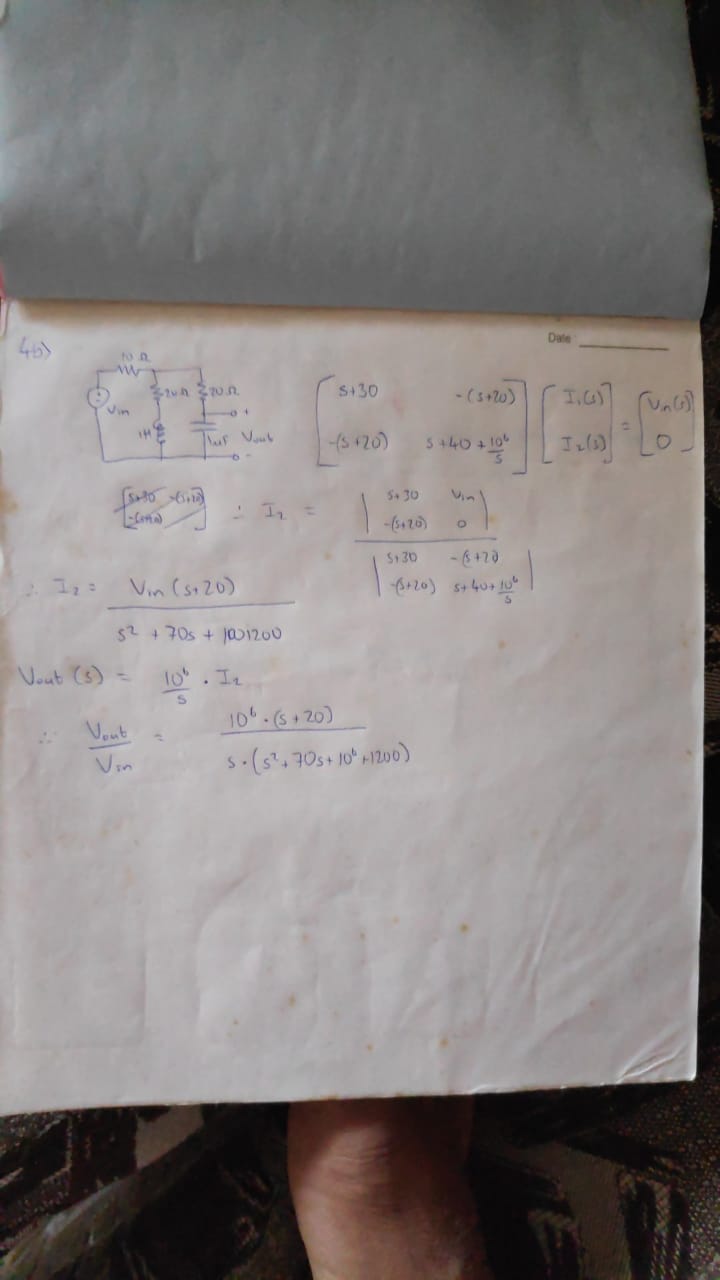 Date
4b)
10 Ω
Vin
20 Ω
20 Ω
1H
1μF
Vout
+
-
[ s+30 -(s+20) ; -(s+20) s+40+10⁶/s ] [ I₁(s) ; I₂(s) ] = [ Vin(s) ; 0 ]
[ s+30 -(s+20) ; -(s+20) ]
∴ I₂ = | s+30 Vin ; -(s+20) 0 | / | s+30 -(s+20) ; -(s+20) s+40+10⁶/s |
∴ I₂ = Vin(s+20) / s² + 70s + 1001200
Vout(s) = 10⁶/s . I₂
∴ Vout/Vin = 10⁶.(s+20) / s.(s²+70s+10⁶+1200)